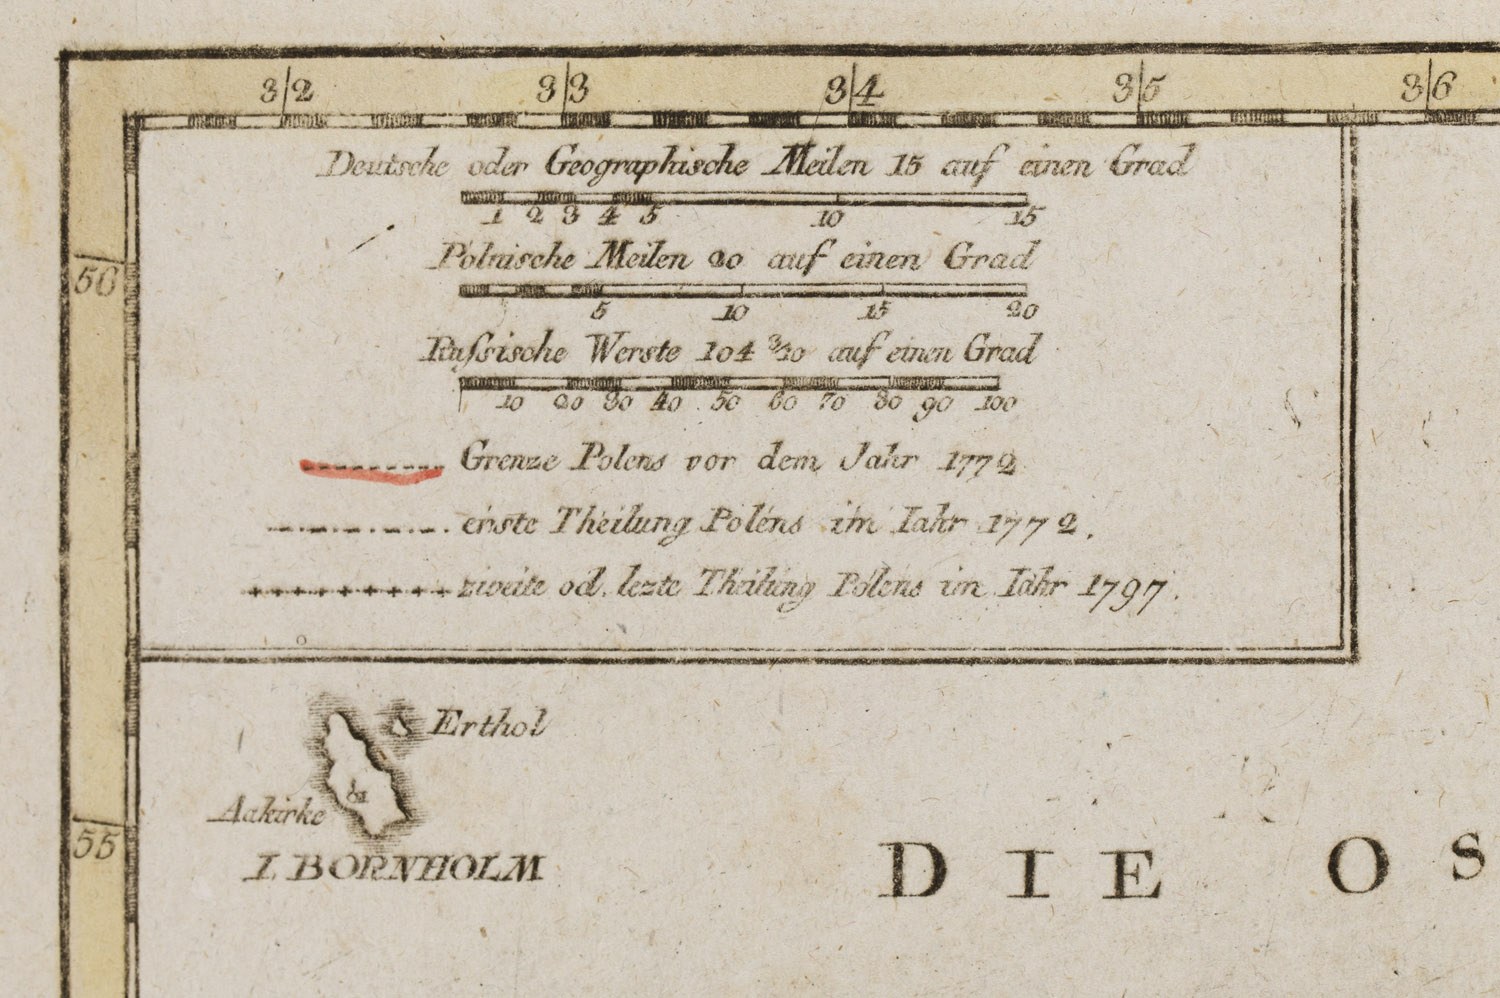 32 33 34 35 36
Deutsche oder Geographische Meilen 15 auf einen Grad
1 2 3 4 5 10 15
Polnische Meilen 20 auf einen Grad
56
5 10 15 20
Rußische Werste 104 3/10 auf einen Grad
10 20 30 40 50 60 70 80 90 100
Grenze Polens vor dem Jahr 1772
erste Theilung Polens im Iahr 1772.
zweite od. lezte Theilung Polens im Iahr 1797.
Erthol
Aakirke
55
I. BORNHOLM
DIE OS